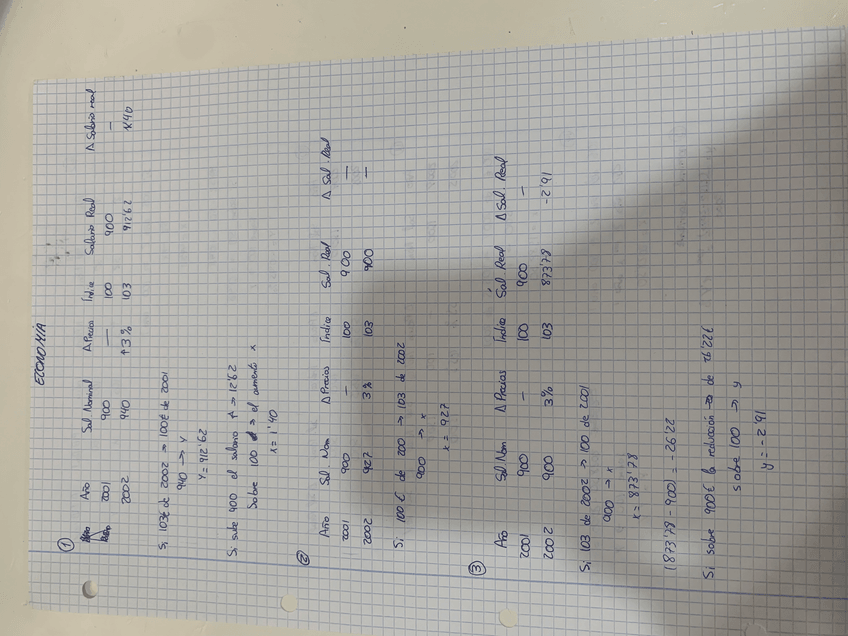 ECONOMÍA
①
Año Sal Nominal Δ Precios Índice Salario Real Δ Salario real
2001 900 — 100 900 —
2002 940 ↑3% 103 912'62
Si 103€ de 2002 → 100€ de 2001
940 → y
y = 912'62
Si sube 900 el salario ↑ → 12'62
Sobre 100 → el aumento x
x = 1'40
②
Año Sal. Nom Δ Precios Índice Sal. Real Δ Sal. Real
2001 900 — 100 900 —
2002 927 3% 103 900 —
Si 100€ de 200 → 103 de 2002
900 → x
x = 927
③
Año Sal Nom Δ Precios Índice Sal Real Δ Sal. Real
2001 900 — 100 900 —
2002 900 3% 103 873'78 -2'91
Si 103 de 2002 → 100 de 2001
900 → x
x = 873'78
(873'78 - 900) = -26'22
Si sobre 900€ la reducción → de 26'22€
sobre 100 → y
y = -2'91